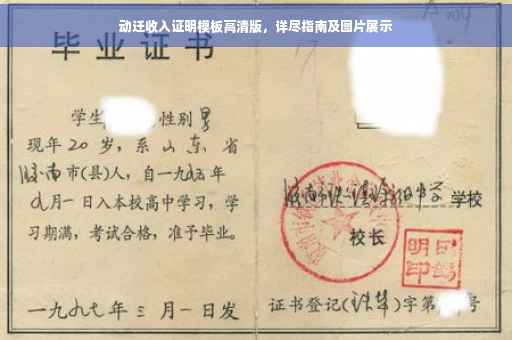 动迁收入证明模板高清版，详尽指南及图片展示
毕业证书
学生 性别男
现年20岁，系山东省
济南市(县)人，自一九九五年
九月一日入本校高中学习，学
习期满，考试合格，准予毕业。
学校
校长
一九九七年三月一日发
证书登记( )字第 号